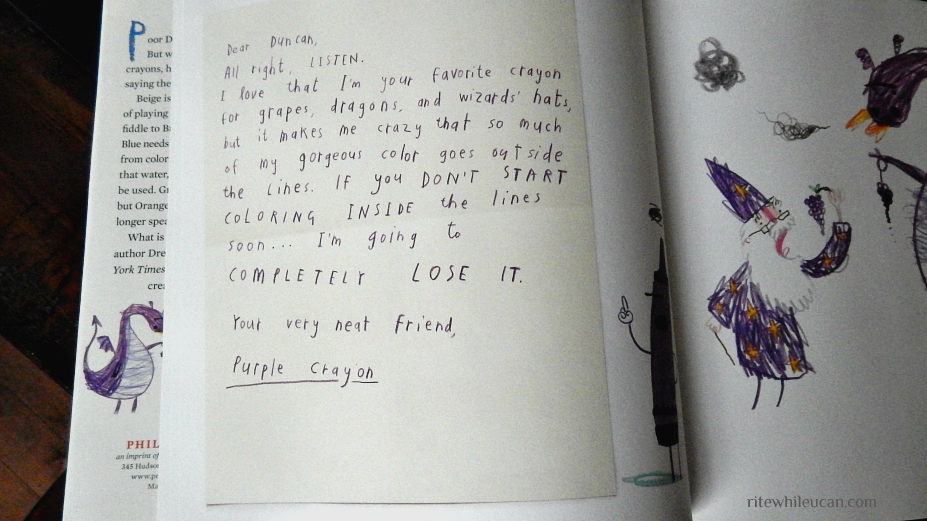 Poor D
But w
crayons, h
saying the
Beige is
of playing
fiddle to B
Blue needs
from color
that water,
be used. Gr
but Orange
longer spea
What is
author Dre
York Times
crea
PHIL
an imprint of
345 Hudso
www.pe
Ma
Dear Duncan,
All right, LISTEN.
I love that I'm your favorite crayon
for grapes, dragons, and wizards' hats,
but it makes me crazy that so much
of my gorgeous color goes outside
the lines. If you DON'T START
COLORING INSIDE the lines
soon... I'm going to
COMPLETELY LOSE IT.
Your very neat friend,
Purple Crayon
ritewhileucan.com